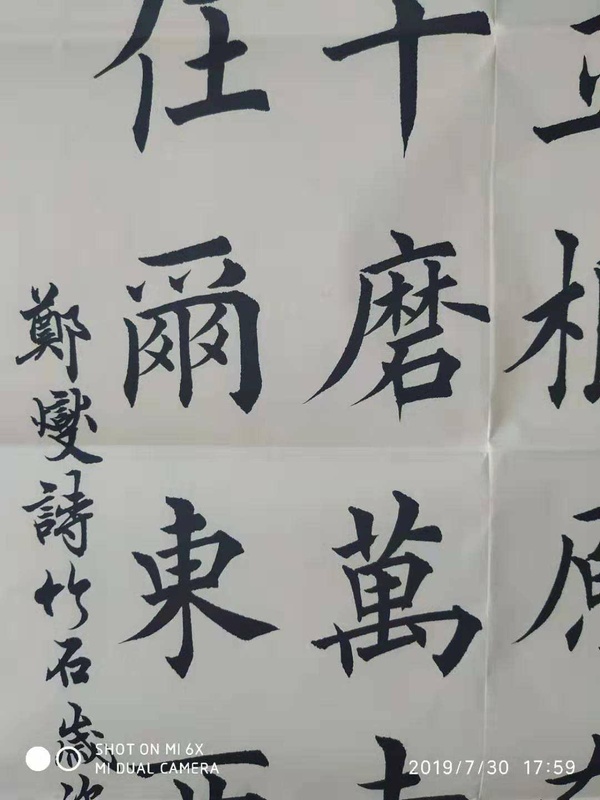 立根原
千磨萬
任爾東西
鄭燮詩竹石歲
SHOT ON MI 6X
MI DUAL CAMERA
2019/7/30 17:59